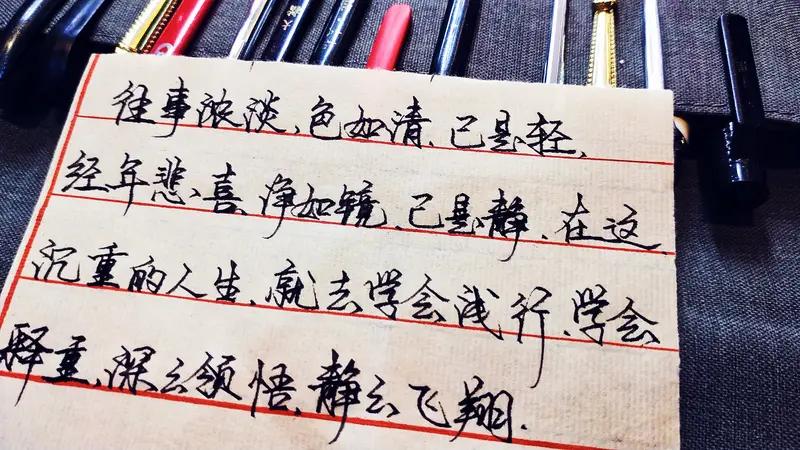 往事浓淡、色如清、已是轻、
经年悲喜、净如镜、已是静、在这
沉重的人生、就去学会浅行、学会
释重、深去领悟、静去飞翔.